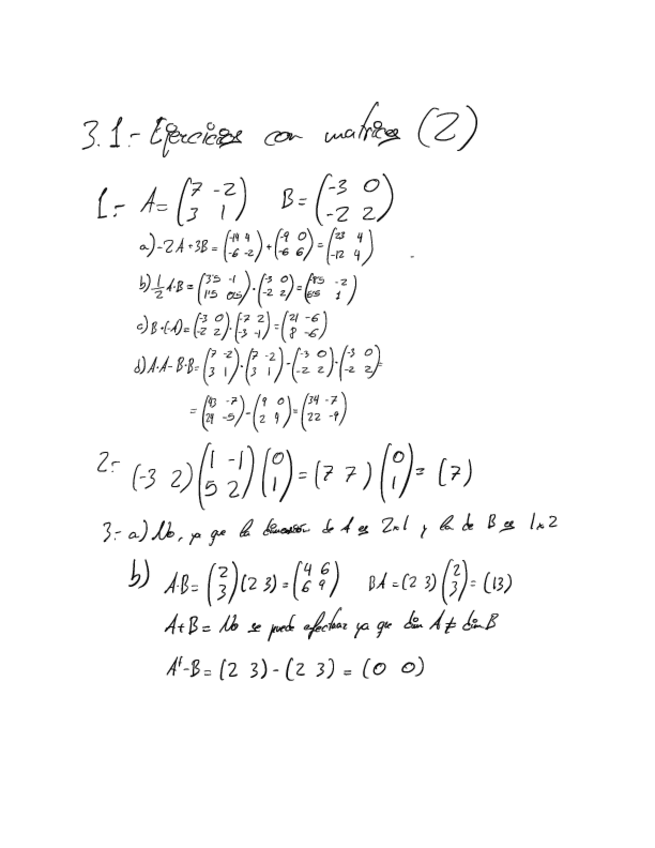 3.1.- Ejercicios con matrices (2)
1.- A = (7 -2; 3 1) B = (-3 0; -2 2)
a) -2A + 3B = (-14 4; -6 -2) + (-9 0; -6 6) = (23 4; -12 4)
b) 1/2 A·B = (3'5 -1; 1'5 0'5) · (-3 0; -2 2) = ( -2; 1)
c) B·(-A) = (-3 0; -2 2) · (-7 2; -3 -1) = (21 -6; 8 -6)
d) A·A - B·B = (7 -2; 3 1) · (7 -2; 3 1) - (-3 0; -2 2) · (-3 0; -2 2) =
= (43 -7; 24 -5) - (9 0; 2 4) = (34 -7; 22 -9)
2.- (-3 2) (1 -1; 5 2) (0; 1) = (7 7) (0; 1) = (7)
3.- a) No, ya que la dimensión de A es 2x1 y la de B es 1x2
b) A·B = (2; 3) (2 3) = (4 6; 6 9) BA = (2 3) (2; 3) = (13)
A+B = No se puede efectuar ya que dim A ≠ dim B
Aᵗ - B = (2 3) - (2 3) = (0 0)